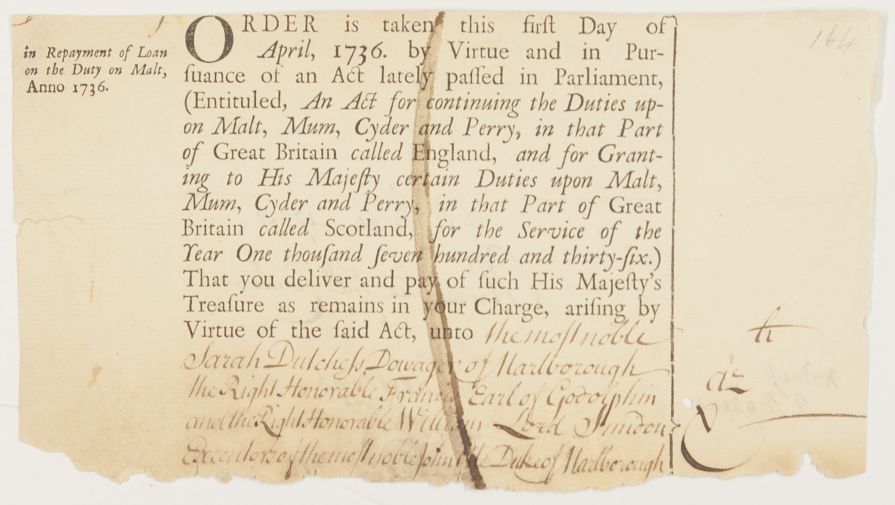 in Repayment of Loan
on the Duty on Malt,
Anno 1736.
ORDER is taken this firſt Day of
April, 1736. by Virtue and in Pur-
ſuance of an Act lately paſſed in Parliament,
(Entituled, An Act for continuing the Duties up-
on Malt, Mum, Cyder and Perry, in that Part
of Great Britain called England, and for Grant-
ing to His Majeſty certain Duties upon Malt,
Mum, Cyder and Perry, in that Part of Great
Britain called Scotland, for the Service of the
Year One thouſand ſeven hundred and thirty-ſix.)
That you deliver and pay of ſuch His Majeſty's
Treaſure as remains in your Charge, ariſing by
Virtue of the ſaid Act, unto the moſt noble
Sarah Dutcheſs Dowager of Marlborough
the Right Honorable Francis Earl of Godolphin
and the Right Honorable William Lord Sundon
Executors of the moſt noble John late Duke of Marlborough
164